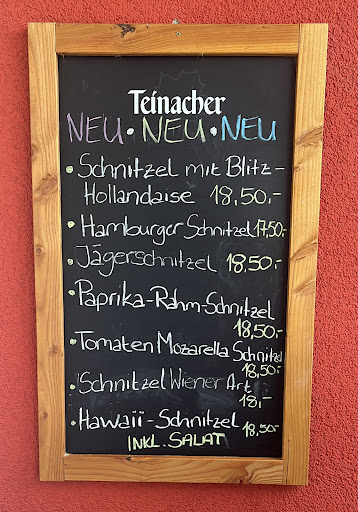 Teinacher
NEU • NEU • NEU
• Schnitzel mit Blitz-
Hollandaise 18,50,-
• Hamburger Schnitzel 17,50,-
• Jägerschnitzel 18,50,-
• Paprika-Rahm-Schnitzel
18,50,-
• Tomaten Mozarella Schnitzel
18,50,-
• Schnitzel Wiener Art
18,-
• Hawaii-Schnitzel 18,50,-
INKL. SALAT